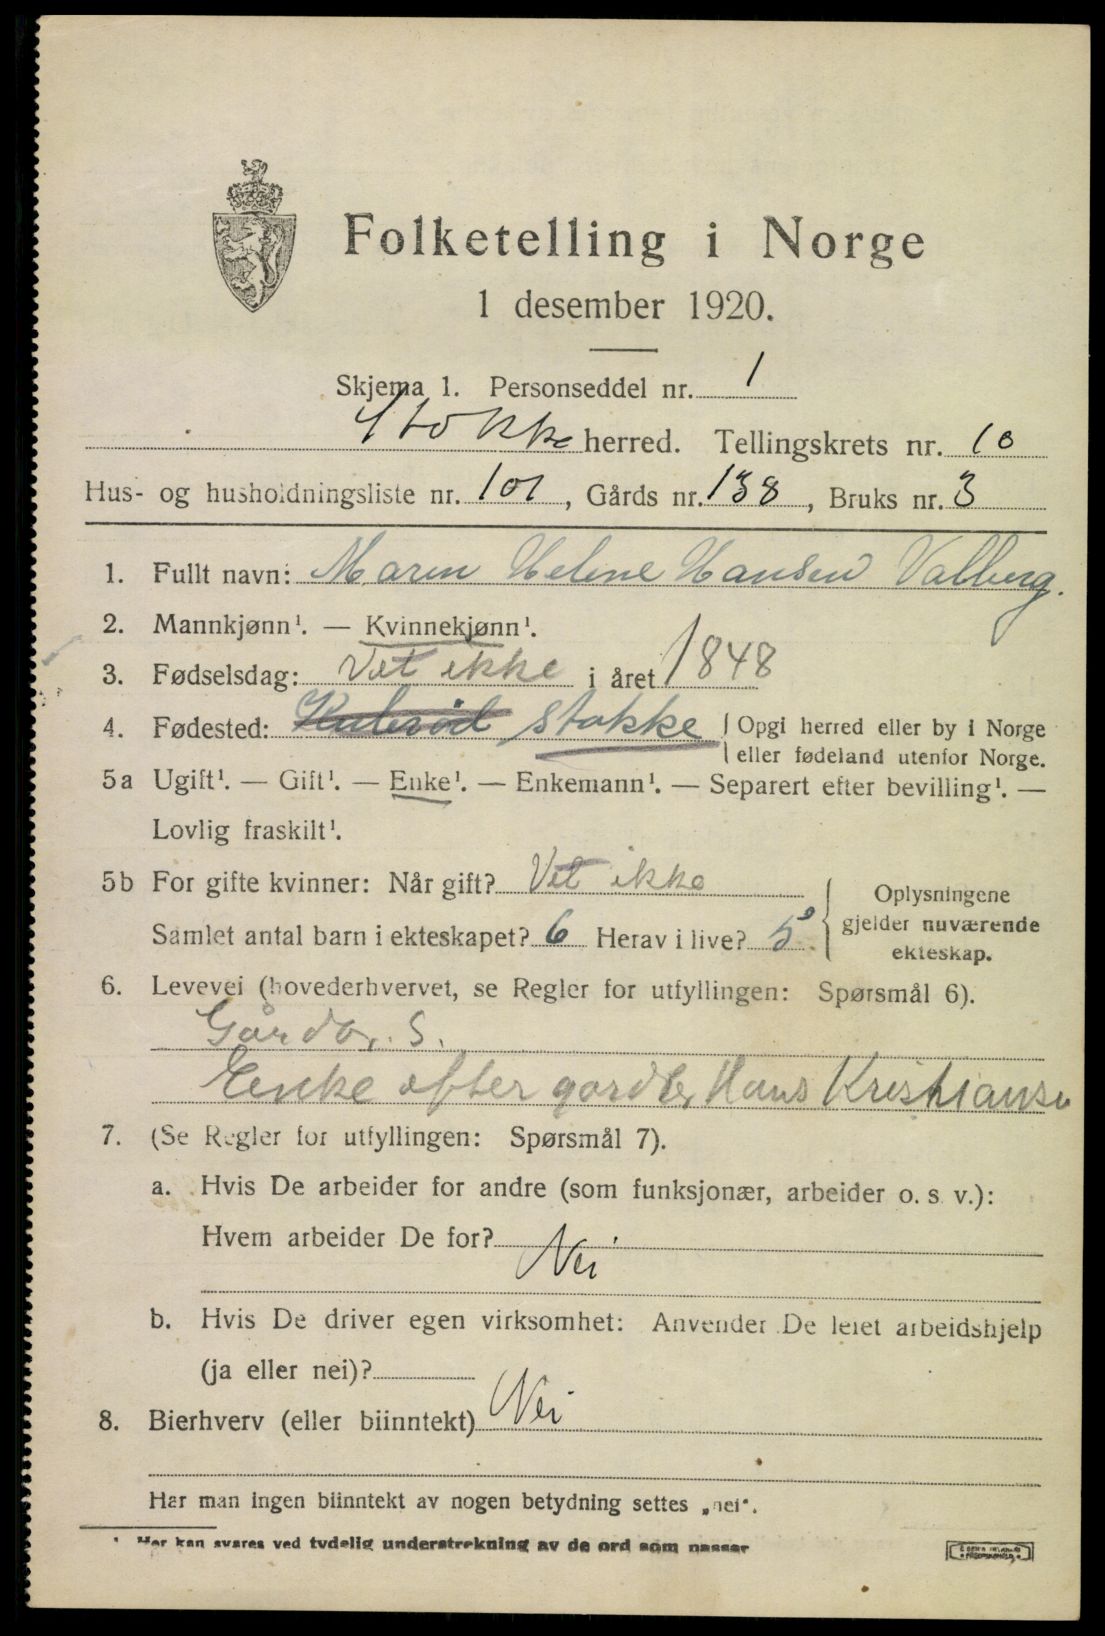 Folketelling i Norge
1 desember 1920.
Skjema 1. Personseddel nr. 1
Stokke herred. Tellingskrets nr. 10
Hus- og husholdningsliste nr. 101, Gårds nr. 138, Bruks nr. 3
1. Fullt navn: Maren Helene Hansen Valberg.
2. Mannkjønn¹. — Kvinnekjønn¹.
3. Fødselsdag: Vet ikke i året 1848
4. Fødested: Stokke Opgi herred eller by i Norge
eller fødeland utenfor Norge.
5a Ugift¹. — Gift¹. — Enke¹. — Enkemann¹. — Separert efter bevilling¹. —
Lovlig fraskilt¹.
5b For gifte kvinner: Når gift? Vet ikke
Samlet antal barn i ekteskapet? 6 Herav i live? 5
Oplysningene
gjelder nuværende
ekteskap.
6. Levevei (hovederhvervet, se Regler for utfyllingen: Spørsmål 6).
Gårdbr. S.
Enke efter gardbr Hans Kristiansen
7. (Se Regler for utfyllingen: Spørsmål 7).
a. Hvis De arbeider for andre (som funksjonær, arbeider o. s. v.):
Hvem arbeider De for? Nei
b. Hvis De driver egen virksomhet: Anvender De leiet arbeidshjelp
(ja eller nei)?
8. Bierhverv (eller biinntekt) Nei
Har man ingen biinntekt av nogen betydning settes „nei“.
¹ Her kan svares ved tydelig understrekning av de ord som passer